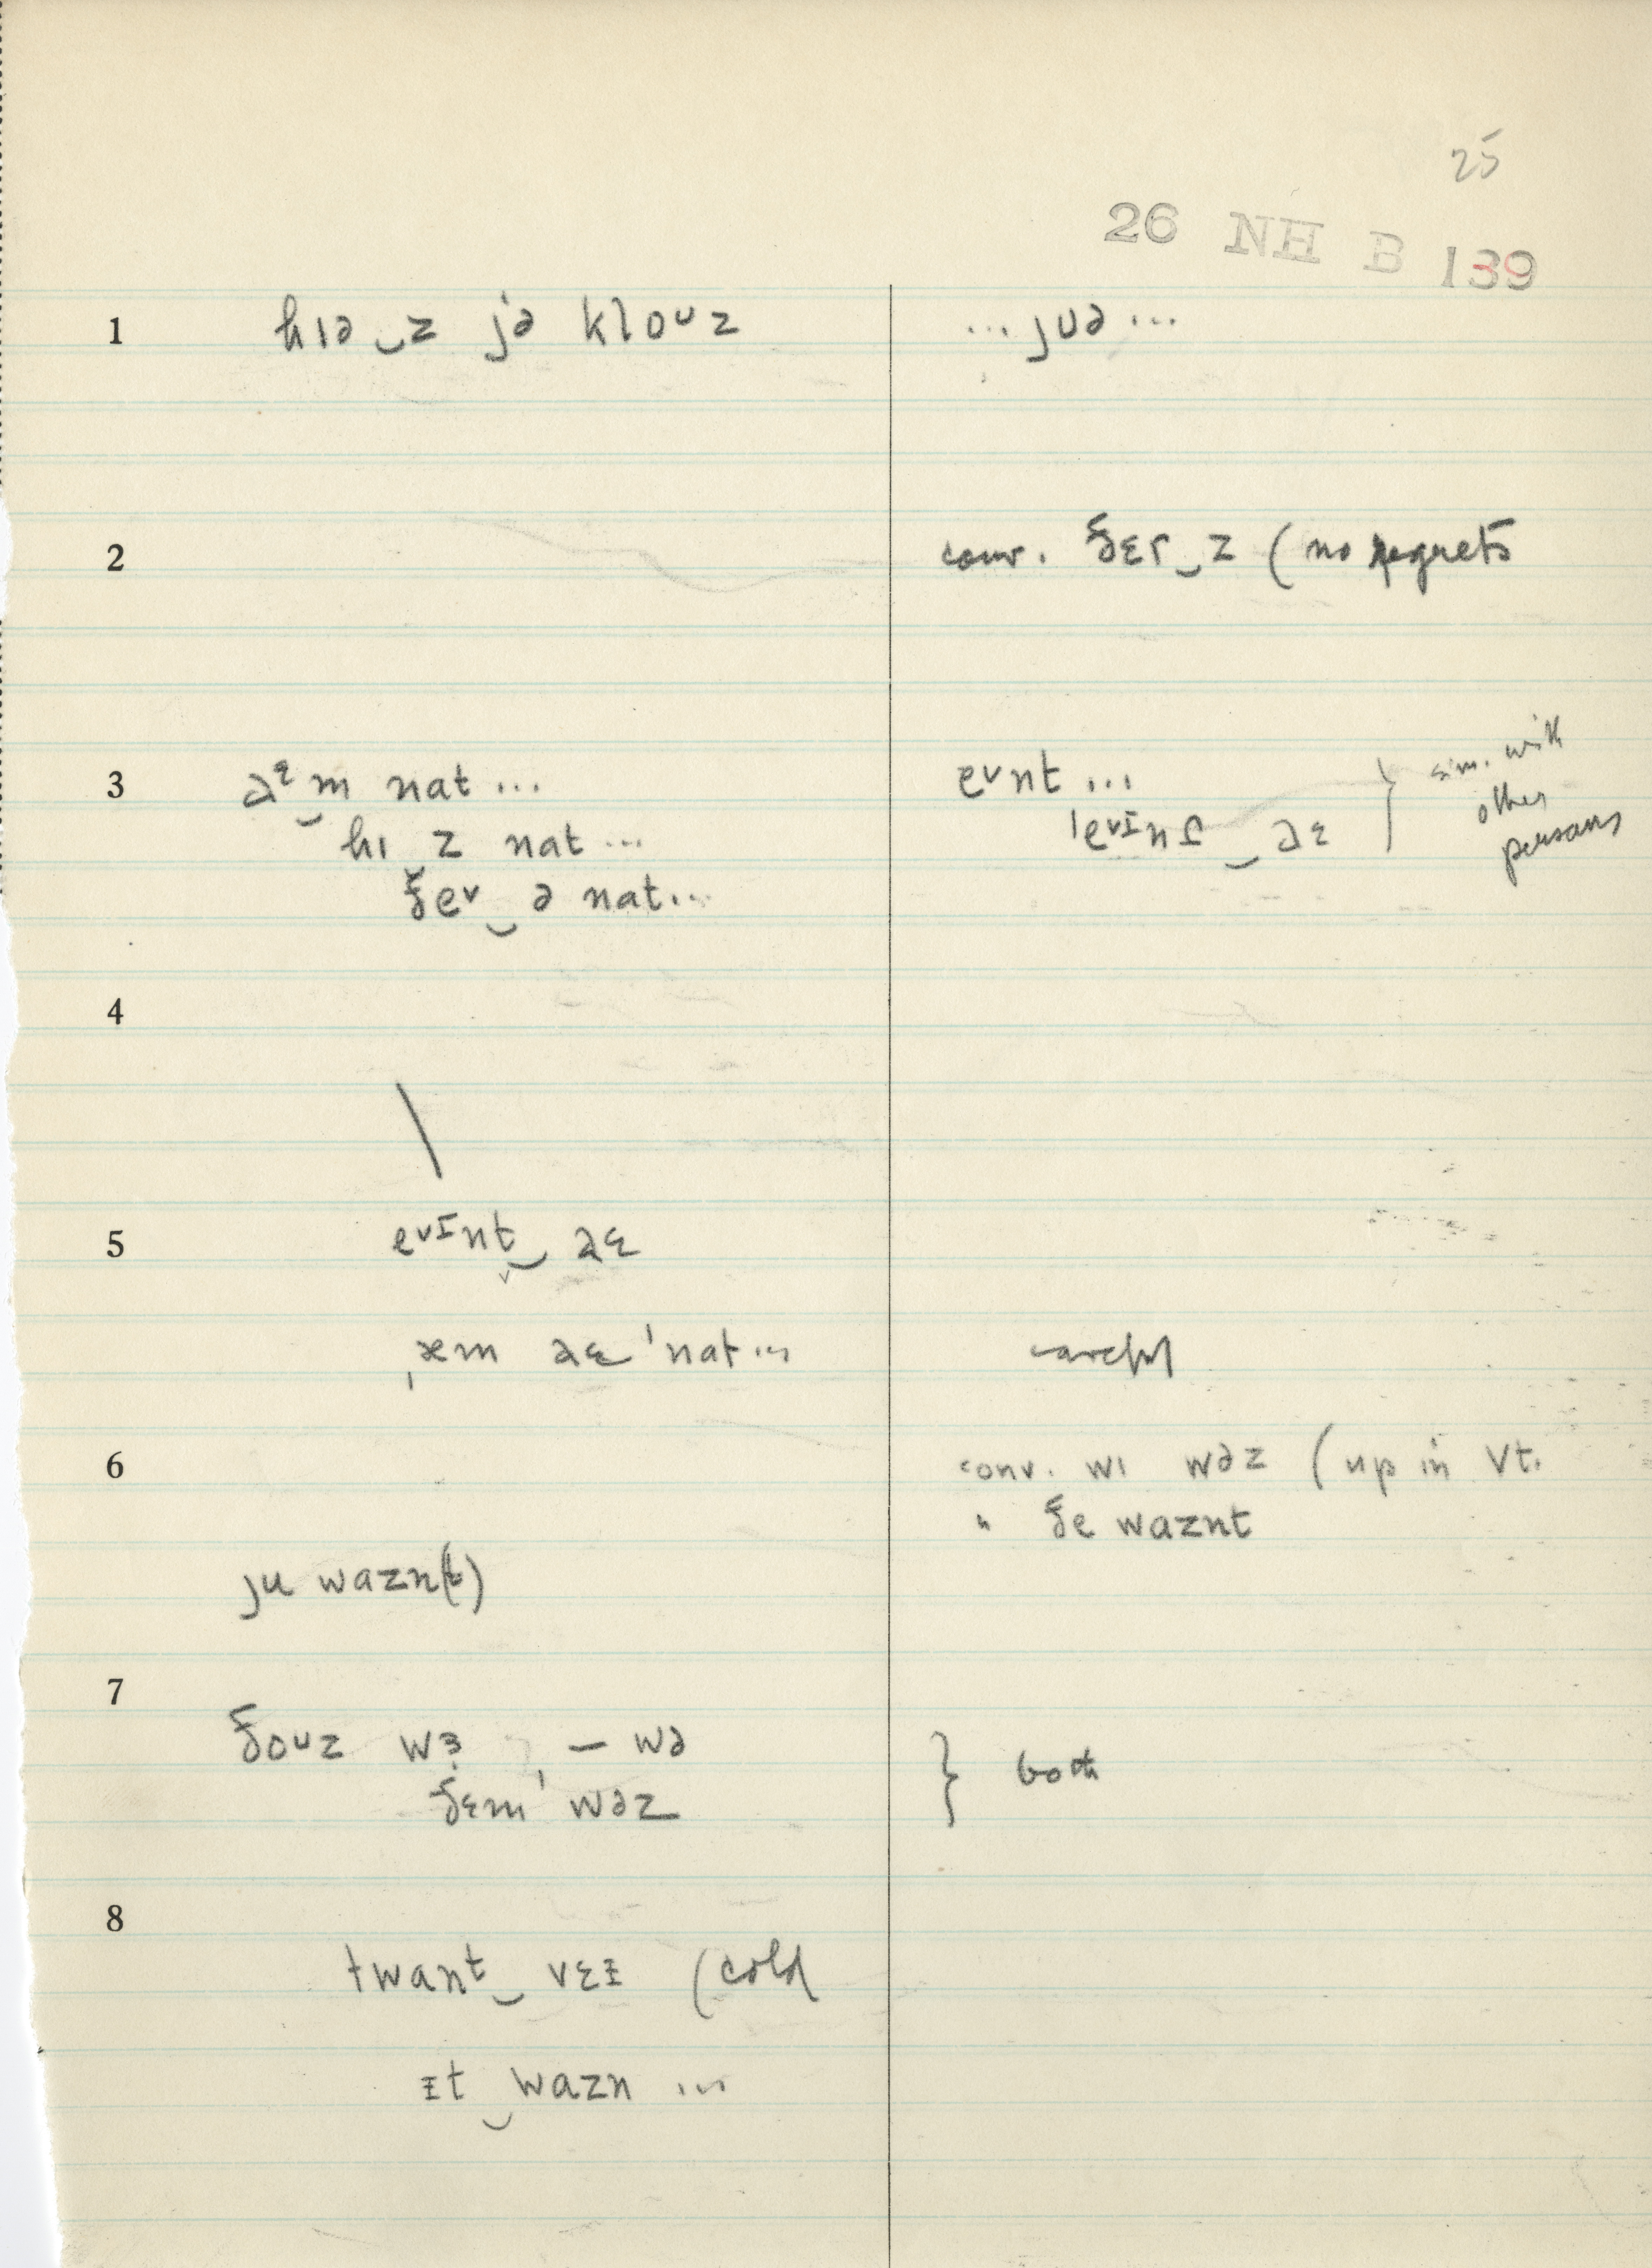 25
26 NH B 139
1 hɪə‿z jə kloᴜz ...jʊə...
2 conv. ðɛr‿z (no regrets
3 aᵋ‿m nat... eᵛnt...
hɪ‿z nat... ˈeᵛᴵnt‿aɛ } sim. with other persons
ðeᵛ‿ə nat...
4
5 eᵛᴵnt‿aɛ
ˌæm aɛ ˈnat...
6 conv. wɪ wəz (up in Vt.
" ðe waznt
ju wazn(t)
7
ðoᴜz wɜ, — wə } both
ðɛmˈ wəz
8
twant‿vɛɪ (cold
ɪt‿wazn ...